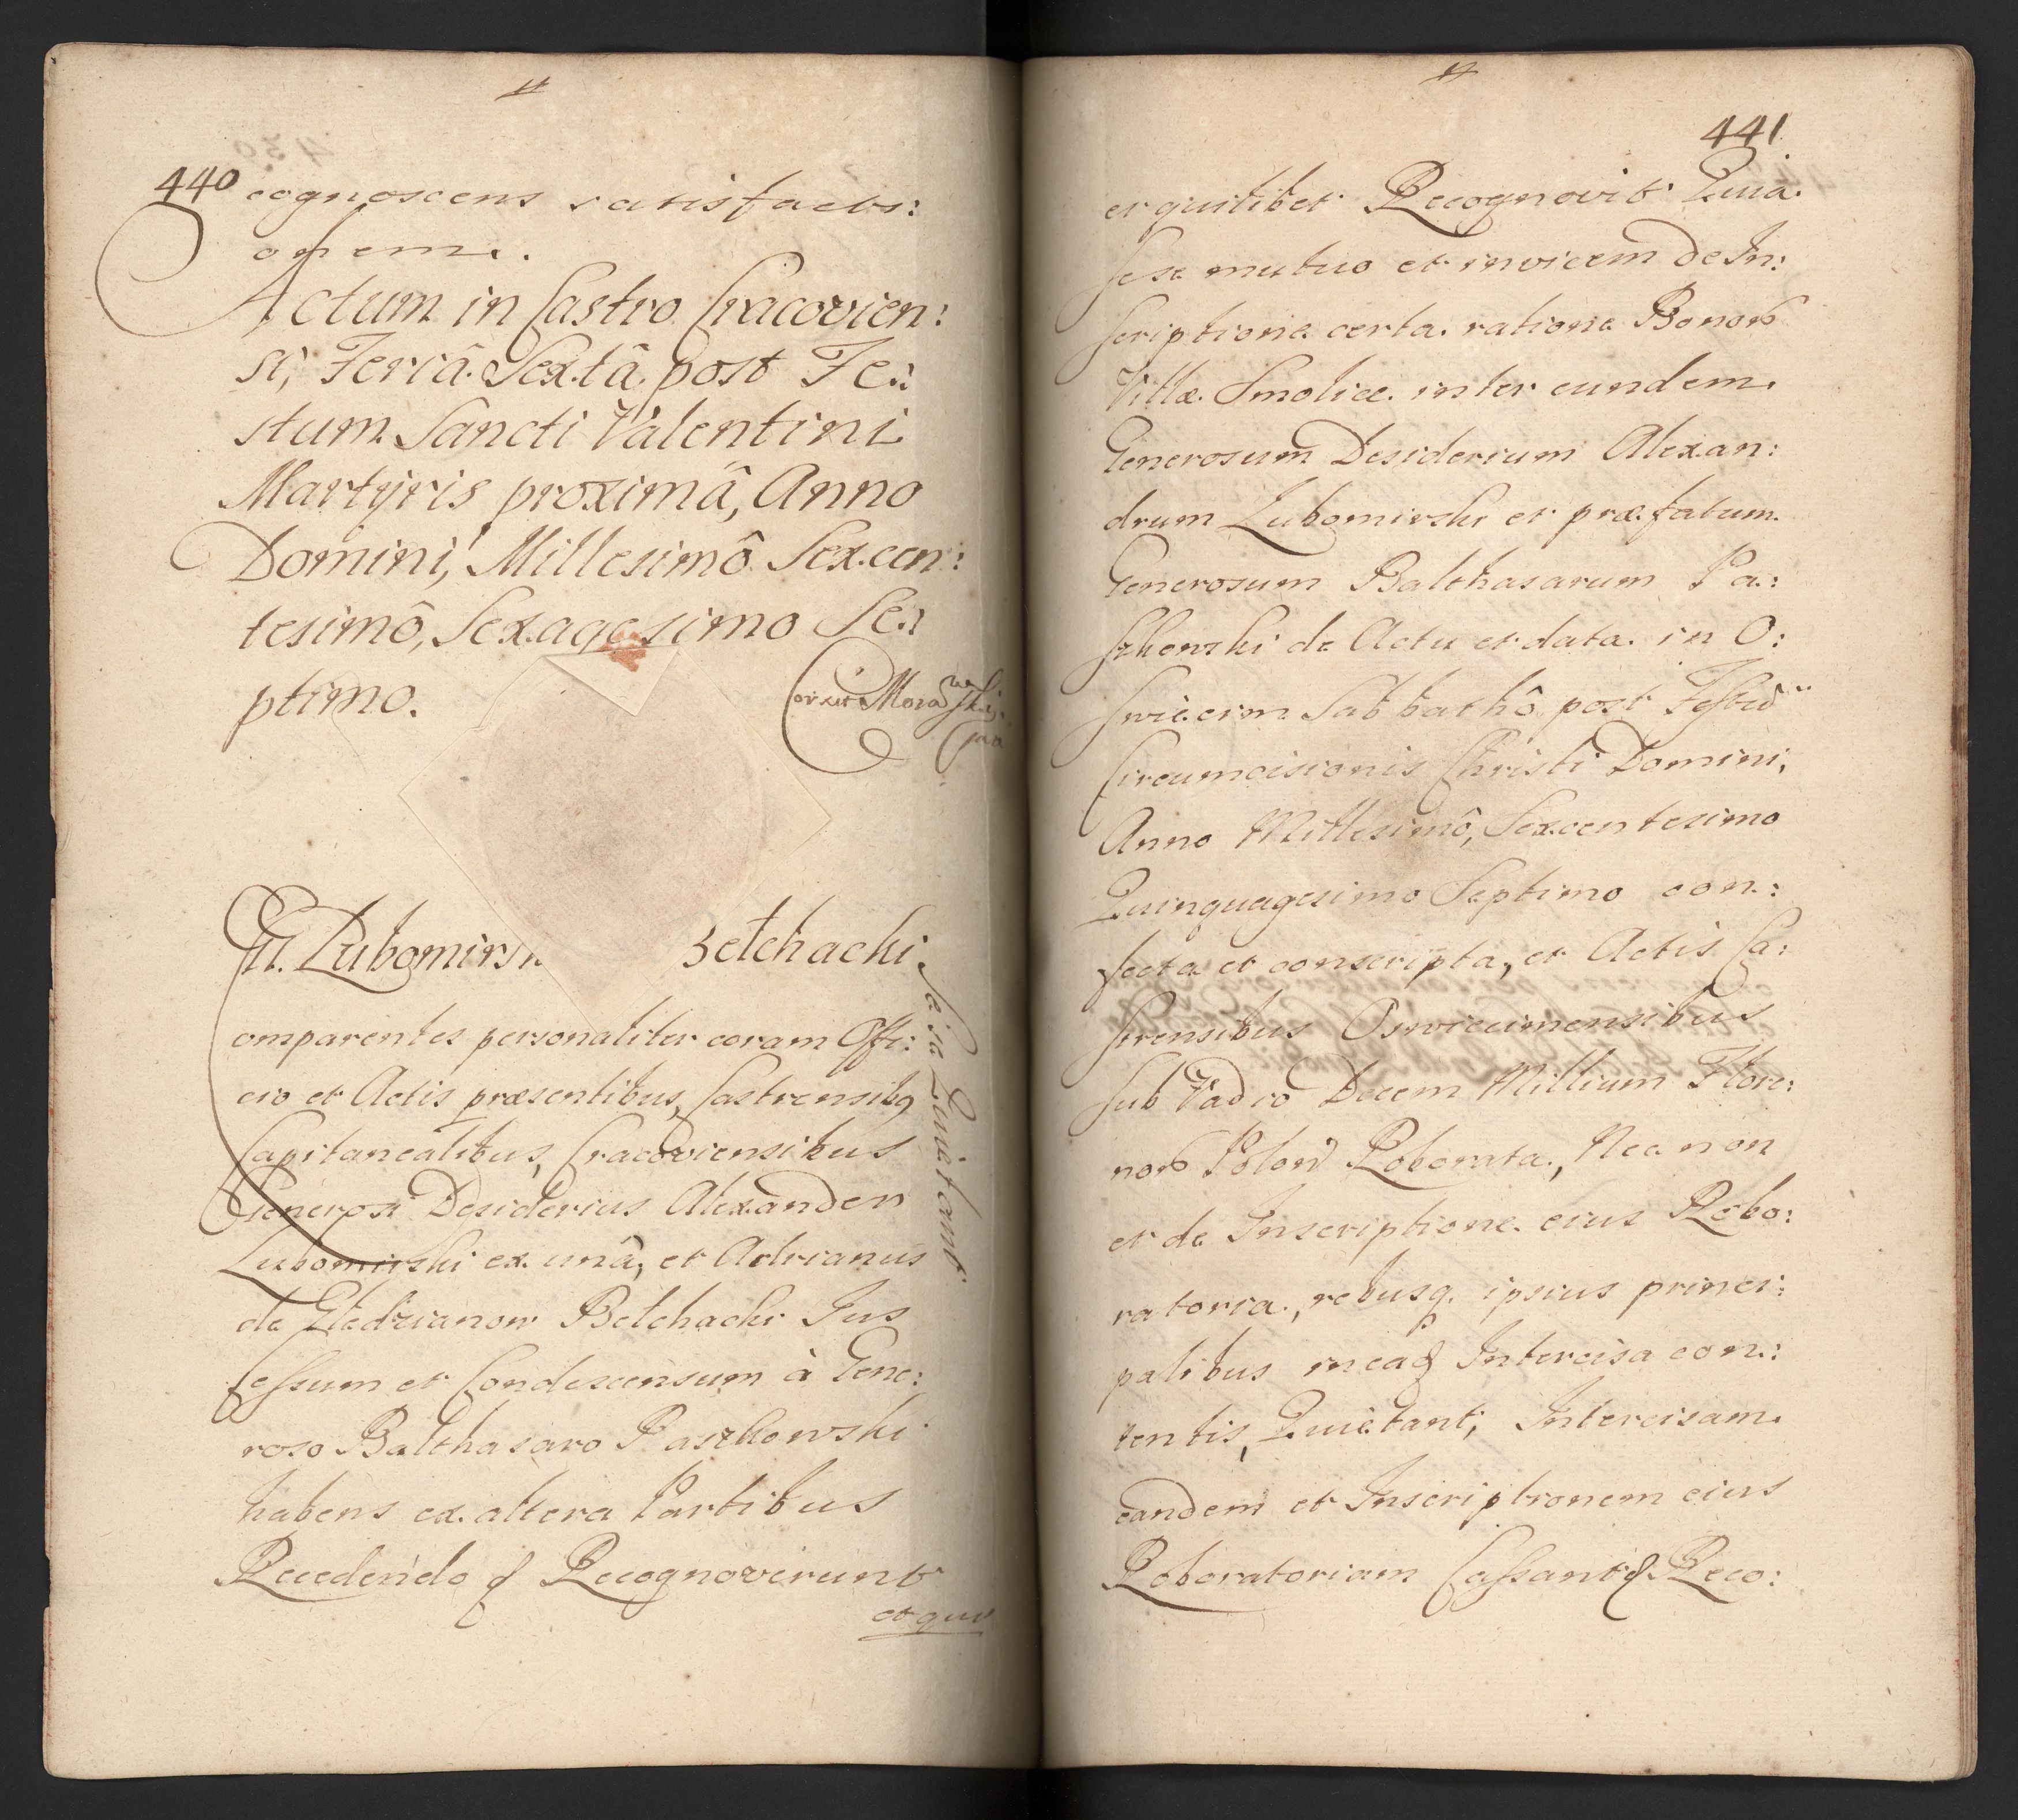 440
cognoscens satisfacti:
onem.
Actum in Castro Cracovien:
si, Feriâ Sextâ post Fe:
stum Sancti Valentini
Martyris proximâ, Anno
Domini, Millesimô Sexcen:
tesimô, Sexagesimo Se:
ptimo.
Lubomirs Betchachi
Se se Quietant
omparentes personaliter coram Offi:
cio et Actis præsentibus, Castrensibq
Capitanealibus, Cracoviensibus
Generosi Desiderius Alexander
Lubomirski ex unâ, et Adrianus
de Betchachi Jus
Cessum et Condescensum à Gene:
roso Balthasaro Paszkowski
habens ex altera Partibus
Recedendo Recognoverunt
et qui
441
et quilibet Recognovit Quia
sese mutuo et invicem de In:
scriptione certa ratione Bonor
Villæ Smolice inter eundem
Generosum Desiderium Alexan:
drum Lubomirski et præfatum
Generosum Balthasarum Pa:
szkowski de Actu et data in O:
swiecim Sabbathô post Festu
Circumcisionis Christi Domini,
Anno Millesimô, Sexcentesimo
Quinquagesimo Septimo con:
fecta et conscripta, et Actis Ca:
strensibus Oswiecimensibus
sub Vadio Decem Millium Flore:
nor Polon Roborata, Nec non
et de Inscriptione eius Robo:
ratoria, rebusq. ipsius princi:
palibus in eaq Intercisa con:
tentis, Quietant, Intercisam
eandem et Inscriptionem eius
Roboratoriam Cassant Reco: